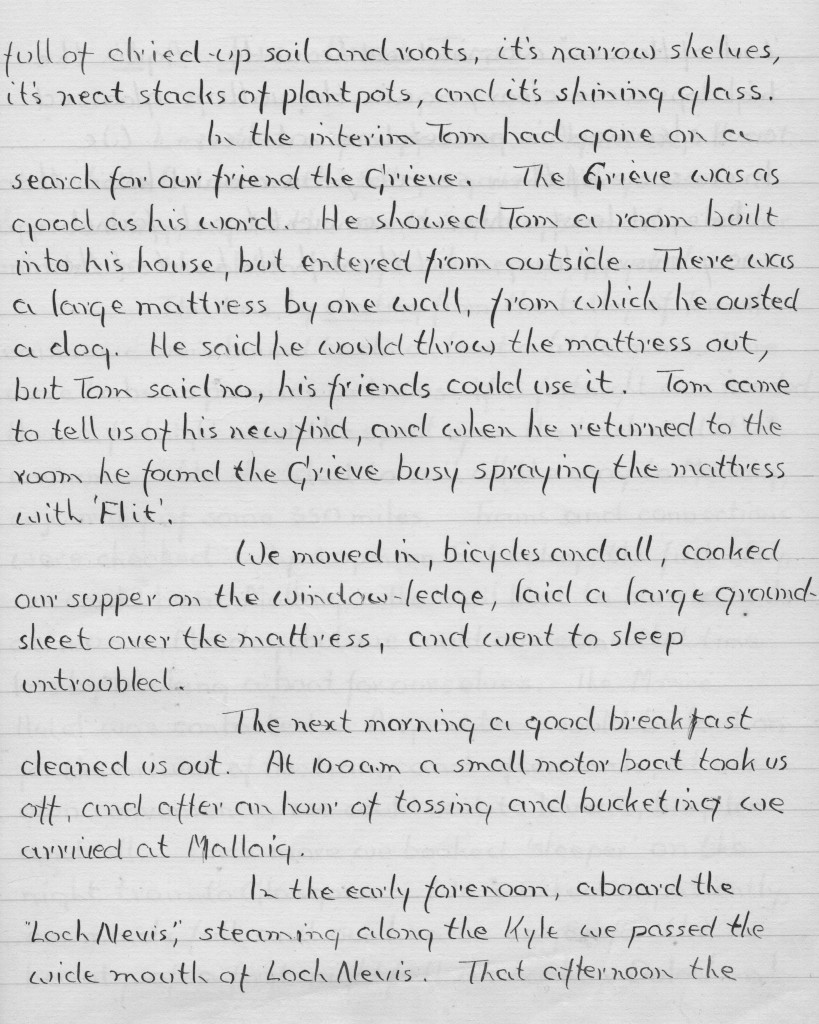 full of dried-up soil and roots, it's narrow shelves,
it's neat stacks of plantpots, and it's shining glass.
In the interim Tom had gone on a
search for our friend the Grieve. The Grieve was as
good as his word. He showed Tom a room built
into his house, but entered from outside. There was
a large mattress by one wall, from which he ousted
a dog. He said he would throw the mattress out,
but Tom said no, his friends could use it. Tom came
to tell us of his new find, and when he returned to the
room he found the Grieve busy spraying the mattress
with 'Flit'.
We moved in, bicycles and all, cooked
our supper on the window-ledge, laid a large ground-
sheet over the mattress, and went to sleep
untroubled.
The next morning a good breakfast
cleaned us out. At 10.0am a small motor boat took us
off, and after an hour of tossing and bucketing we
arrived at Mallaig.
In the early forenoon, aboard the
"Loch Nevis", steaming along the Kyle we passed the
wide mouth of Loch Nevis. That afternoon the